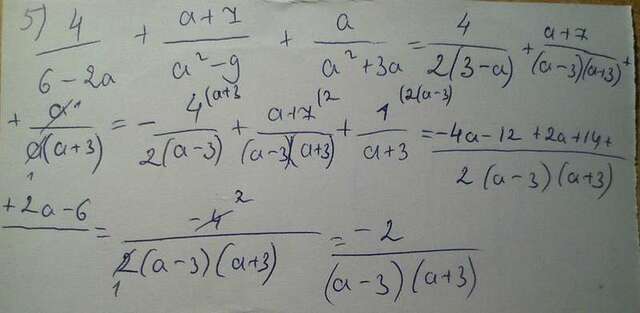 5) 4/(6-2a) + (a+7)/(a²-9) + a/(a²+3a) = 4/(2(3-a)) + (a+7)/((a-3)(a+3)) +
+ a¹/(a₁(a+3)) = - 4^(a+3/(2(a-3)) + (a+7^(2)/((a-3)(a+3)) + 1^(2(a-3)/(a+3) = (-4a-12+2a+14+)/(2(a-3)(a+3))
(+2a-6)/ = (-4²)/(2₁(a-3)(a+3)) = (-2)/((a-3)(a+3))